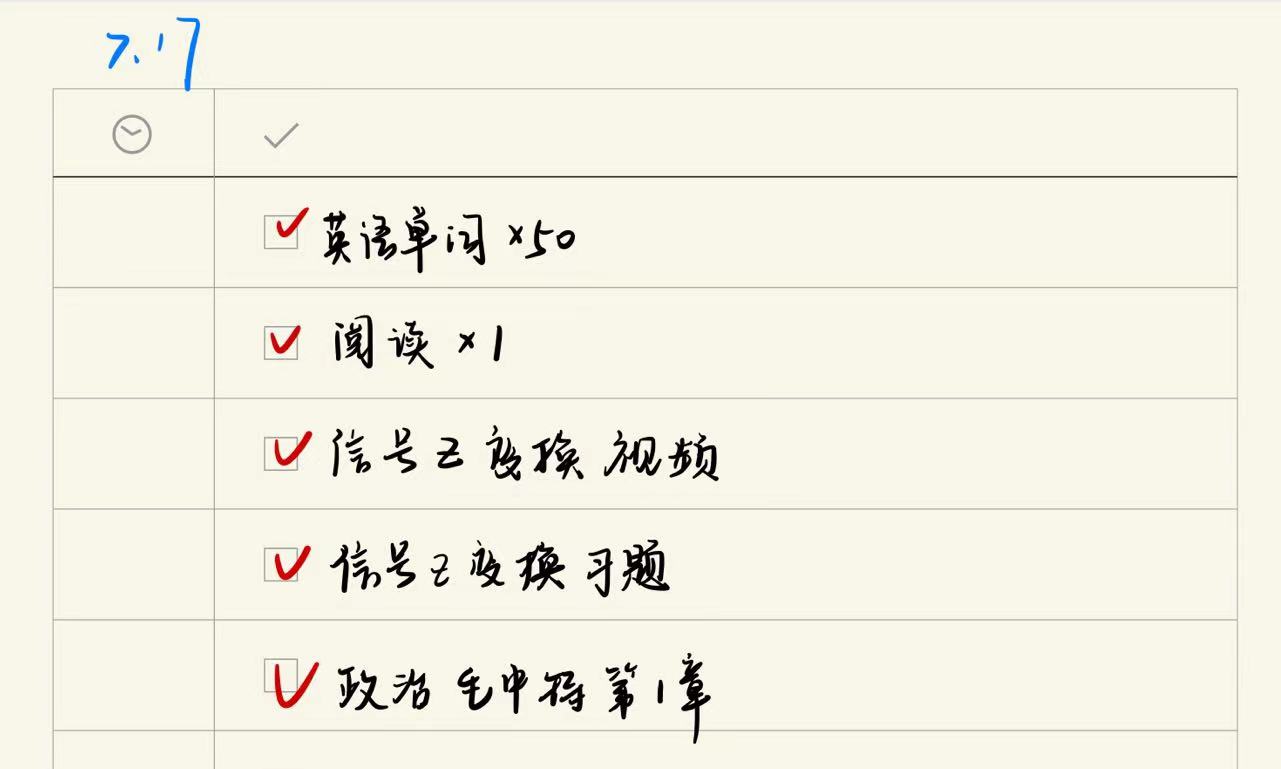 7.17
英语单词 ×50
阅读 ×1
信号Z变换 视频
信号Z变换 习题
政治 毛中特 第1章